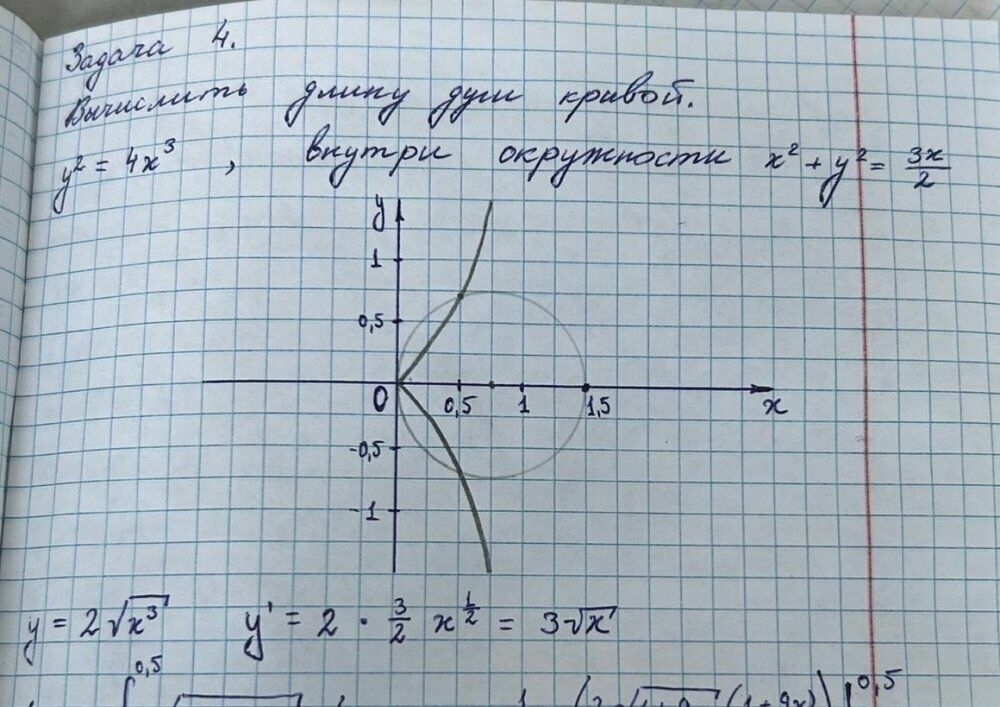 Задача 4.
Вычислить длину дуги кривой.
y² = 4x³ , внутри окружности x² + y² = 3x/2
y
1
0,5
0 0,5 1 1,5 x
-0,5
-1
y = 2√x³ y' = 2 · 3/2 x^(1/2) = 3√x
0,5 (1+9x) 0,5